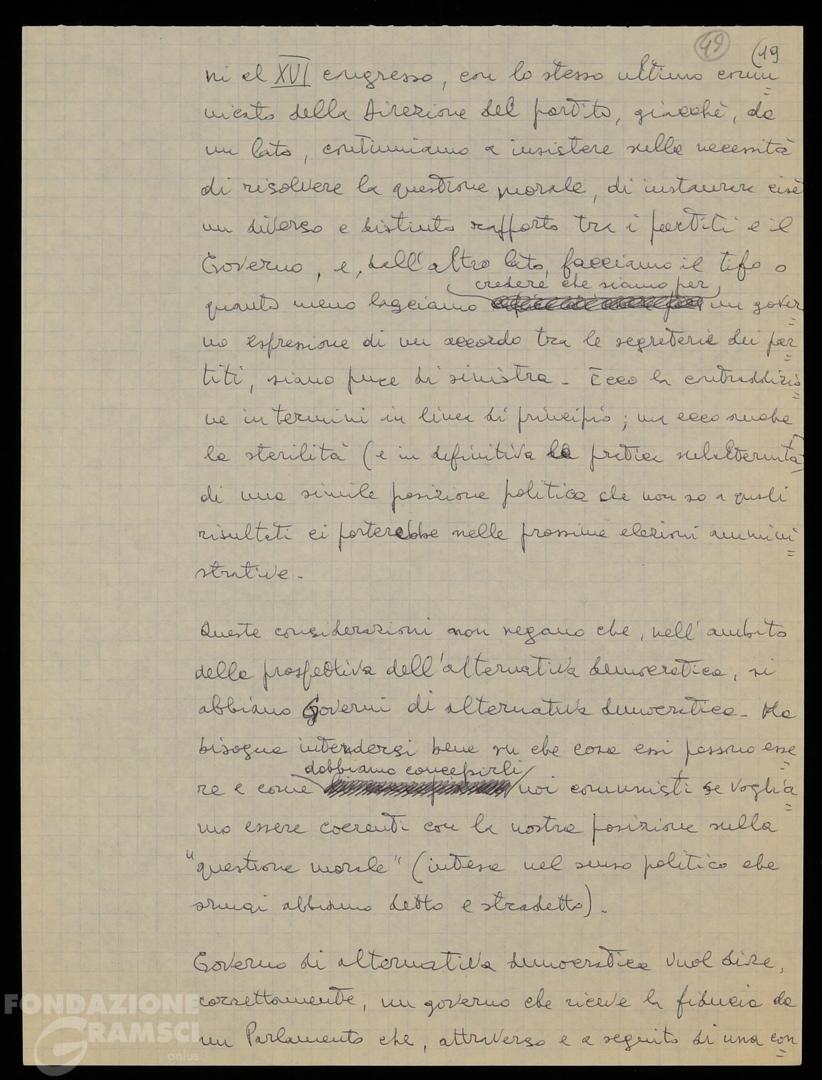 49 (19
ni el XVI congresso, con lo stesso ultimo comu=
nicato della Direzione del partito, giacché, da
un lato, continuiamo a insistere sulla necessità
di risolvere la questione morale, di instaurare cioè
un diverso e distinto rapporto tra i partiti e il
Governo, e, dall'altro lato, facciamo il tifo o
credere che siamo per
quanto meno lasciamo un gover=
no espressione di un accordo tra le segreterie dei par=
titi, siano pure di sinistra. Ecco la contraddizio=
ne in termini in linea di principio; ma ecco anche
la sterilità (e in definitiva la pratica subalternità)
di una simile posizione politica che non so a quali
risultati ci porterebbe nelle prossime elezioni ammini=
strative.
Queste considerazioni non negano che, nell'ambito
della prospettiva dell'alternativa democratica, si
abbiano Governi di alternativa democratica. Ma
bisogna intendersi bene su che cosa essi possono esse=
dobbiamo concepirli
re e come noi comunisti se voglia=
mo essere coerenti con la nostra posizione sulla
"questione morale" (intesa nel senso politico che
ormai abbiamo detto e stradetto).
Governo di alternativa democratica vuol dire,
correttamente, un governo che riceve la fiducia da
un Parlamento che, attraverso e a seguito di una con=
FONDAZIONE
GRAMSCI
onlus